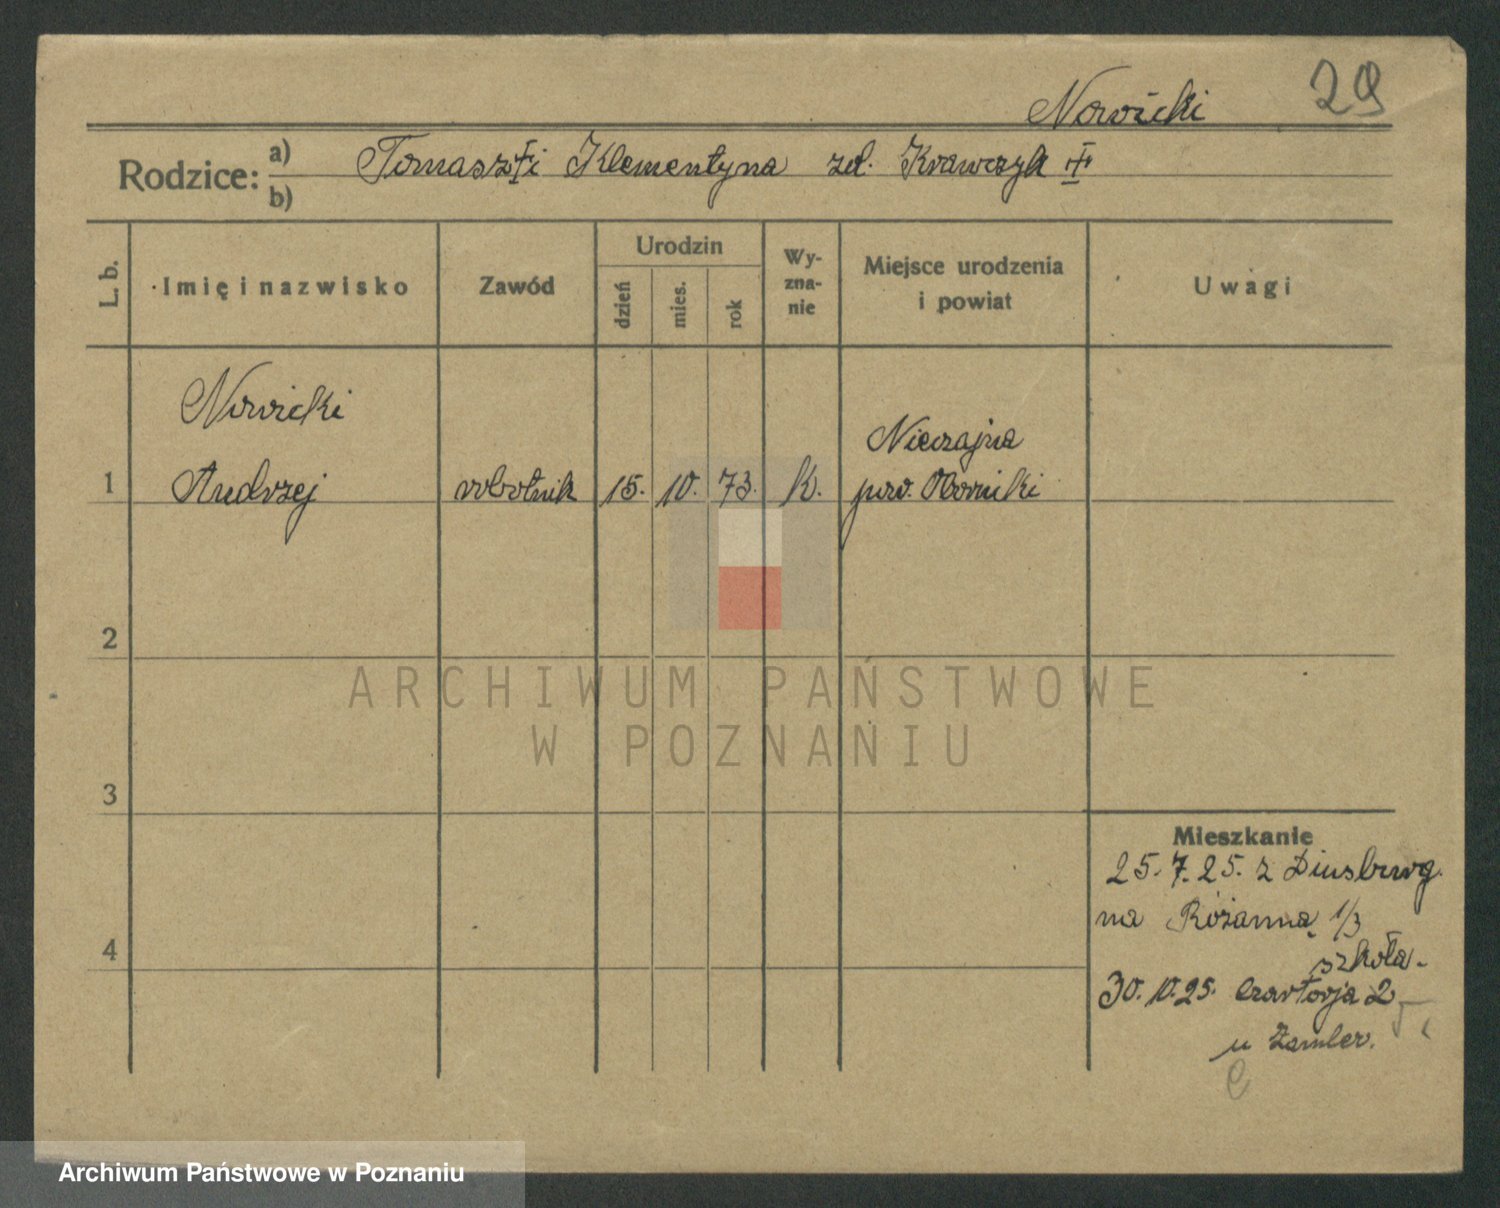 Nowicki 29
Rodzice: a) b) Tomasz † i Klementyna zd. Krawczyk †
L. b.
Imię i nazwisko
Zawód
Urodzin
dzień
mies.
rok
Wy-
zna-
nie
Miejsce urodzenia
i powiat
Uwagi
Nowicki
Nieczajna
1 Andrzej robotnik 15. 10. 73. k. pow. Oborniki
2
ARCHIWUM PAŃSTWOWE
W POZNANIU
3
Mieszkanie
25.7.25. z Diusburg.
na Różanna 1/3
szkoła.
4
30.10.25. Czartorja 2
u Zamler.
Archiwum Państwowe w Poznaniu